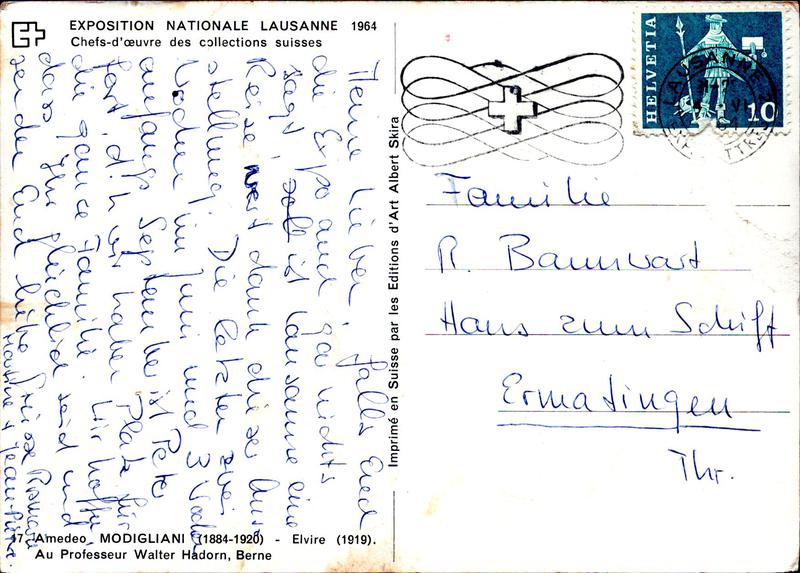 EXPOSITION NATIONALE LAUSANNE 1964
Chefs-d'œuvre des collections suisses
Meine Lieben, falls Euch
die Expo auch gar nichts
sagt, so ist Lausanne eine
Reise wert dank dieser Aus-
stellung. Die letzten zwei
Wochen im Juni und 3 Wochen
anfangs September ist Peter
fort, d.h. wir haben Platz für
die ganze Familie. Wir hoffen,
dass Ihr glücklich seid und
senden Euch liebe Grüsse
Martine + Jean-Pierre
17. Amedeo MODIGLIANI (1884-1920) - Elvire (1919).
Au Professeur Walter Hadorn, Berne
Imprimé en Suisse par les Editions d'Art Albert Skira
HELVETIA
10
LAUSANNE
Familie
R. Bannwart
Haus zum Schiff
Ermatingen
Thr.